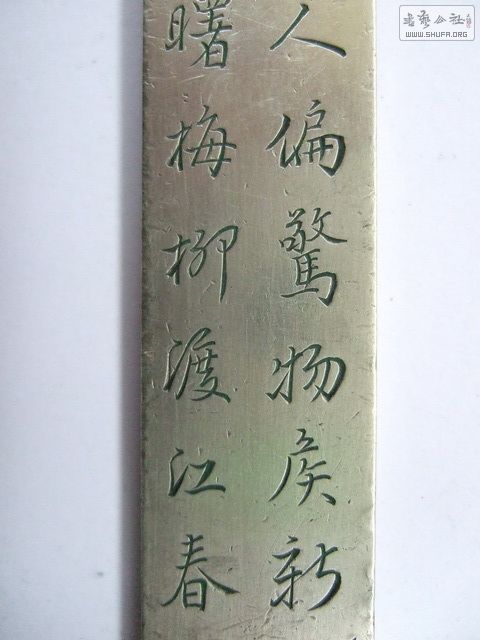 人偏驚物矦新
曙梅柳渡江春
書藝公社
WWW.SHUFA.ORG